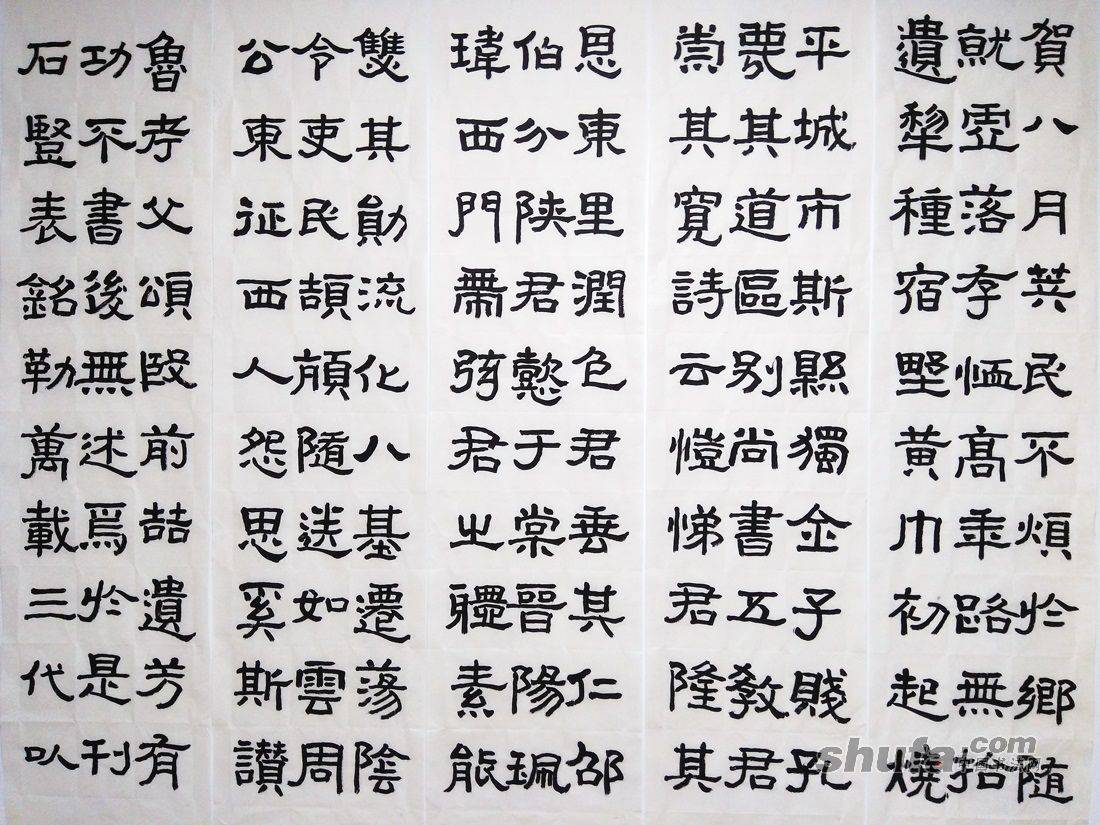 賀八月筭民不煩於鄉随
就虛落存恤高年路無拾
遺犁種宿野黃巾初起燒
平城市斯縣獨全子賤孔
蔑其道區別尚書五教君
崇其寬詩云愷悌君隆其
恩東里潤色君垂其仁邵
伯分陝君懿于棠晉陽珮
瑋西門帶弦君之體素能
雙其勛流化八基遷蕩陰
令吏民頡頏隨送如雲周
公東征西人怨思奚斯讃
魯孝父頌殷前喆遺芳有
功不書後無述焉於是刊
石豎表銘勒萬載三代以
shufa.com